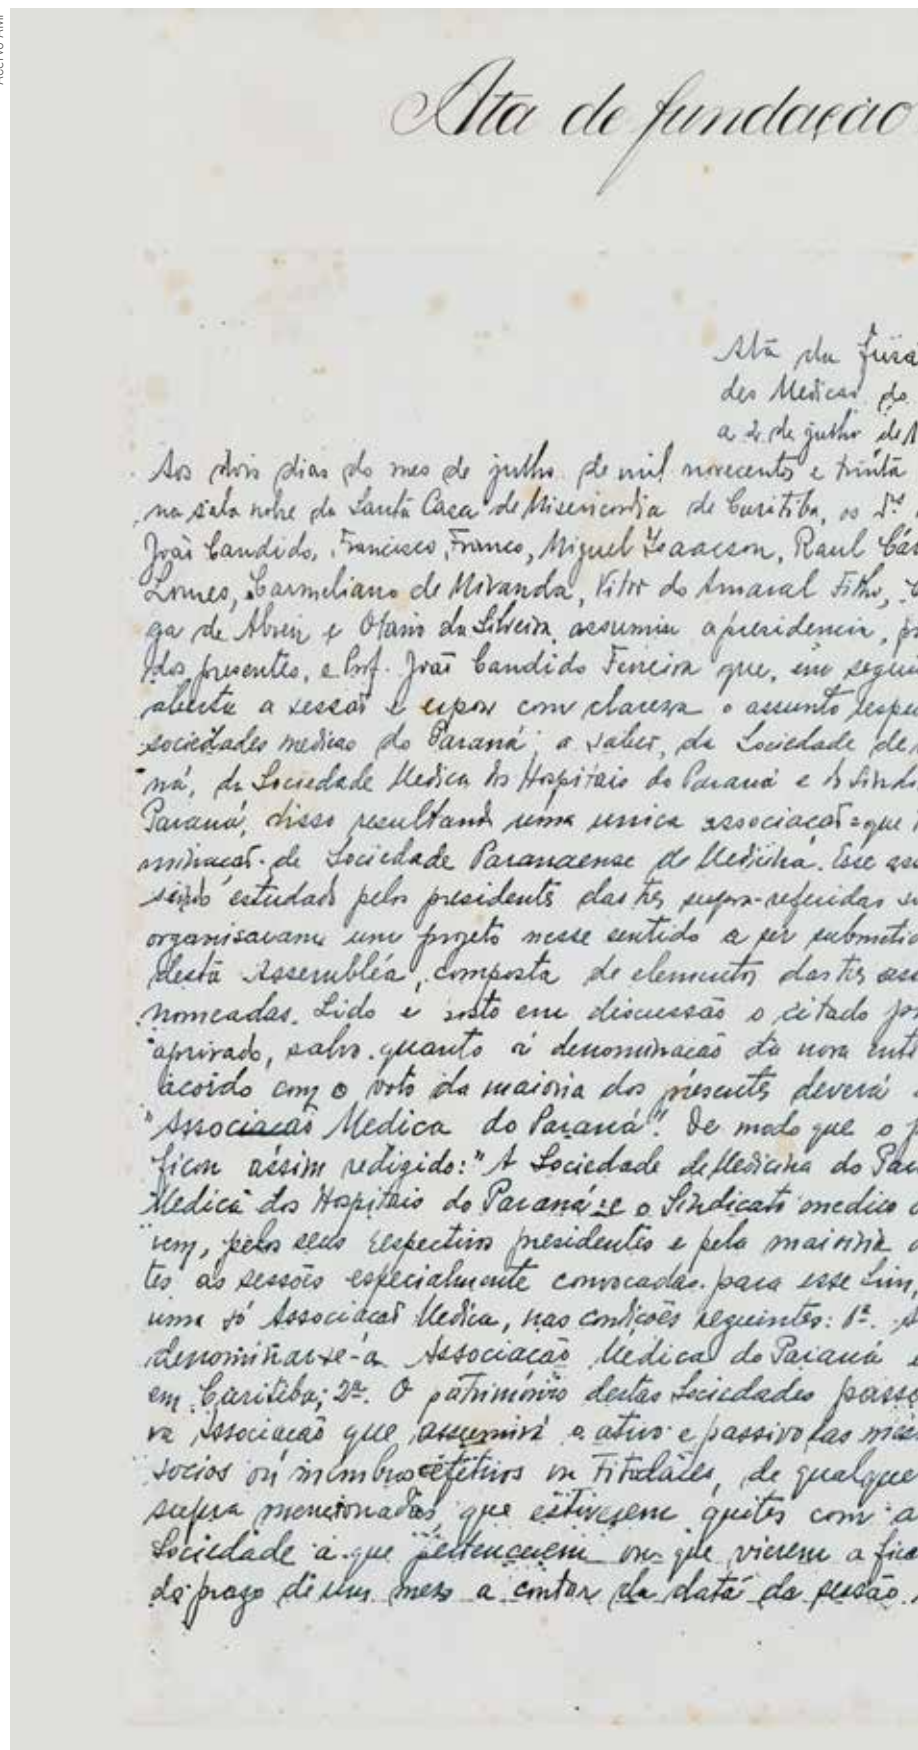 Acervo AMP
Ata de fundação
Ata da fusã
des Medicas do
a 2 de julho de 1
Aos dois dias do mes de julho de mil novecentos e trinta
na sala nobre da Santa Casa de Misericordia de Curitiba, os Drs
João Candido, Francisco Franco, Miguel Isaacson, Raul Car
Lomes, Carmeliano de Miranda, Vitor do Amaral Filho,
ga de Abreu e Otavio da Silveira, assumiu a presidencia, p
dos presentes, o Prof. João Candido Ferreira que, em segui
aberta a sessão e expos com clareza o assunto respe
sociedades medicas do Paraná, a saber, da Sociedade de
ná, da Sociedade Medica dos Hospitais do Paraná e do Sindi
Paraná, disso resultando uma unica associação que
minação de Sociedade Paranaense de Medicina. Esse ass
sendo estudado pelos presidentes das tres supra-referidas s
organisaram um projeto nesse sentido a ser submetid
desta Assembléa, composta de elementos das tres ass
nomeadas. Lido e posto em discussão o citado pro
aprovado, salvo quanto á denominação da nova enti
acordo com o voto da maioria dos presentes deverá
"Associação Medica do Paraná". De modo que o p
ficou assim redigido: "A Sociedade de Medicina do Par
Medica dos Hospitais do Paraná e o Sindicato medico
vem, pelos seus respectivos presidentes e pela maioria
tes as sessões especialmente convocadas para esse fim,
uma só Associação Medica, nas condições seguintes: 1ª. A
denominar-se-á Associação Medica do Paraná e
em Curitiba; 2ª. O patrimônio destas Sociedades passa
va Associação que assumirá o ativo e passivo das mes
socios ou membros efetivos ou Titulares, de qualquer
supra mencionadas que estivesem quites com a
Sociedade a que pertencerem ou que vierem a fica
do prazo de um mes a contar da data da sessão